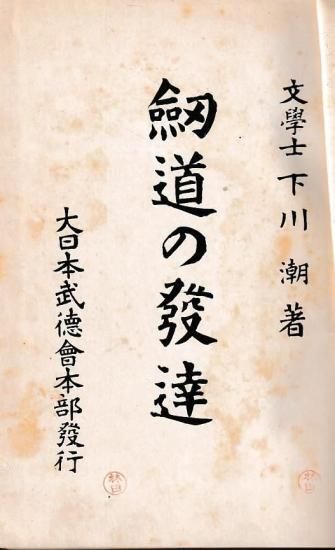 文學士 下川 潮 著
劔道の發達
大日本武德會本部發行